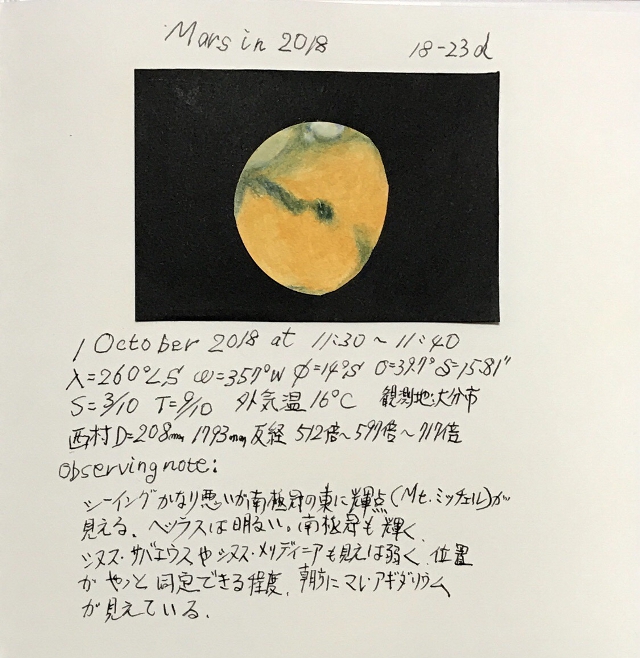 Mars in 2018 18-23d
1 October 2018 at 11:30~11:40
λ=260°LS ω=357°W φ=14°S σ=39.7° S=15.81"
S=3/10 T=9/10 外気温 16°C 観測地:大分市
西村 D=208mm 1793mm 反経 512倍~597倍~717倍
Observing note:
シーイングかなり悪いが南極冠の東に輝点(Mt.ミッチェル)が
見える。ヘラスは明るい。南極冠も輝く。
シヌス・サバエウスやシヌス・メリディニアも見えは弱く、位置
がやっと同定できる程度、朝方にマレ・アキダリウム
が見えている。